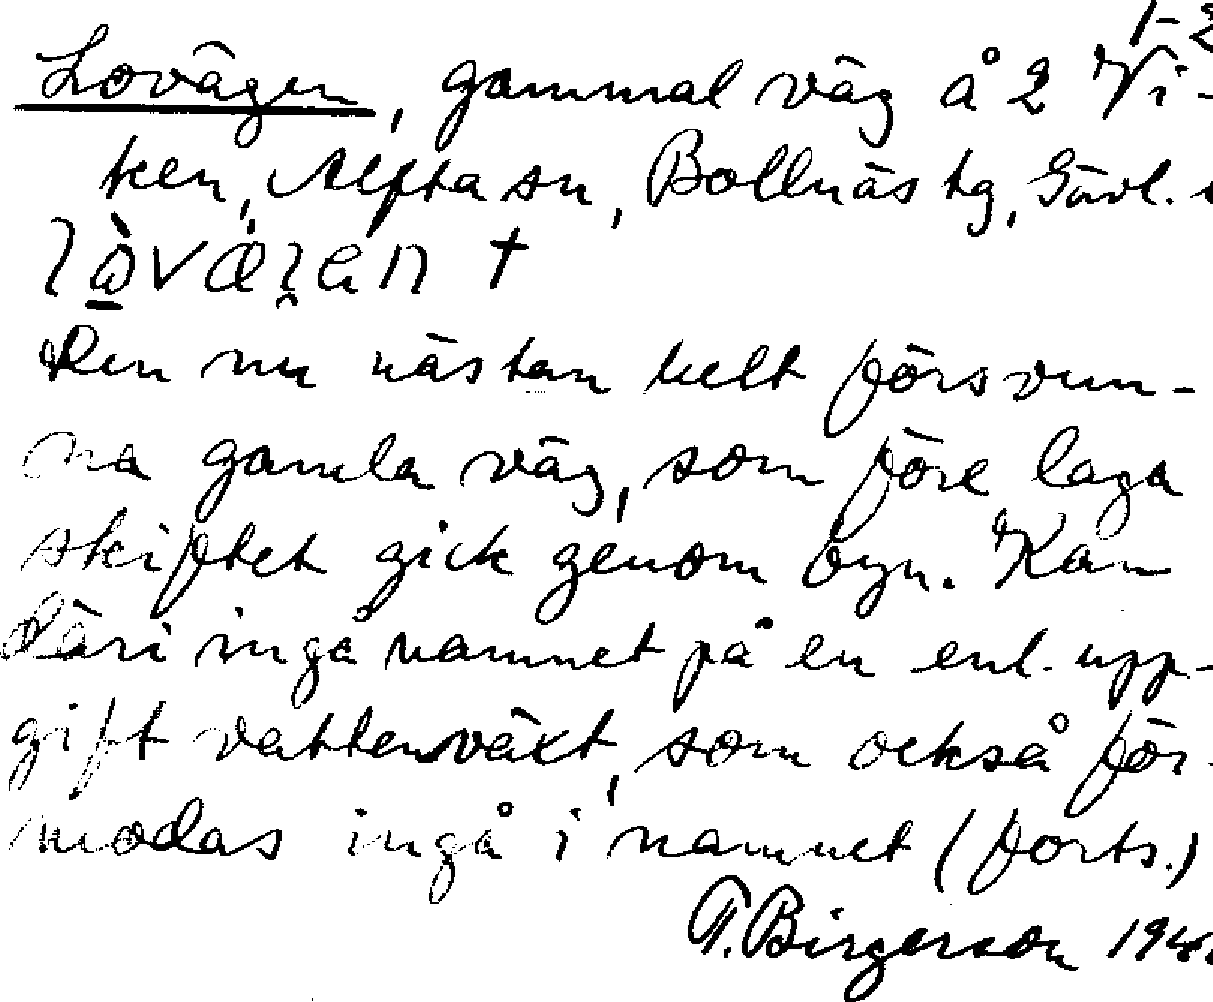 1-2
Lovägen, gammal väg å 2 Vi-
ken, Alfta sn, Bollnäs tg, Gävl.
Den nu nästan helt försvun-
na gamla väg, som före laga
skiftet gick genom byn. Kan
däri ingå namnet på en enl. upp-
gift vattenväxt, som också för-
modas ingå i namnet (forts.)
T. Birgerson